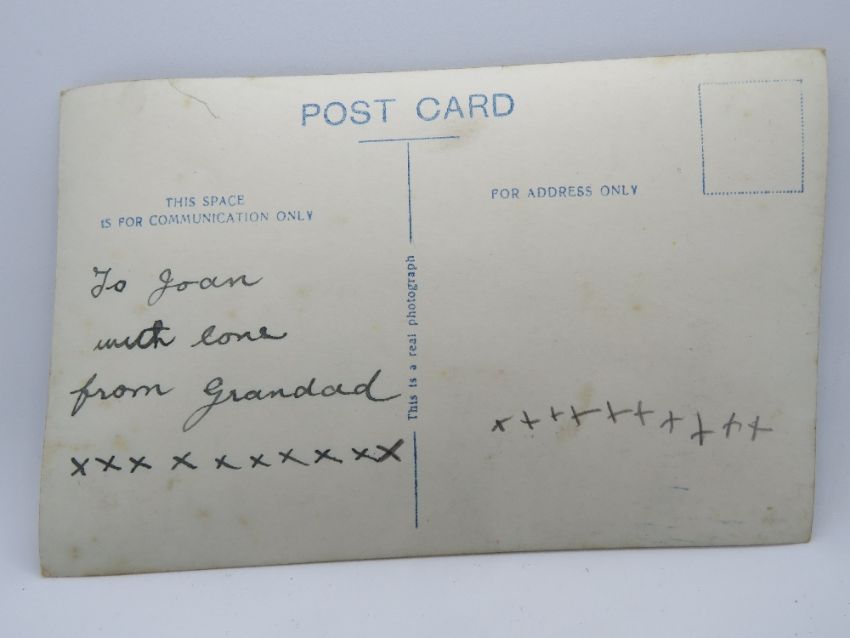 POST CARD
THIS SPACE
IS FOR COMMUNICATION ONLY
To Joan
with love
from Grandad
xxx x x x x x x x
This is a real photograph
FOR ADDRESS ONLY
x x x x x x x x x x x